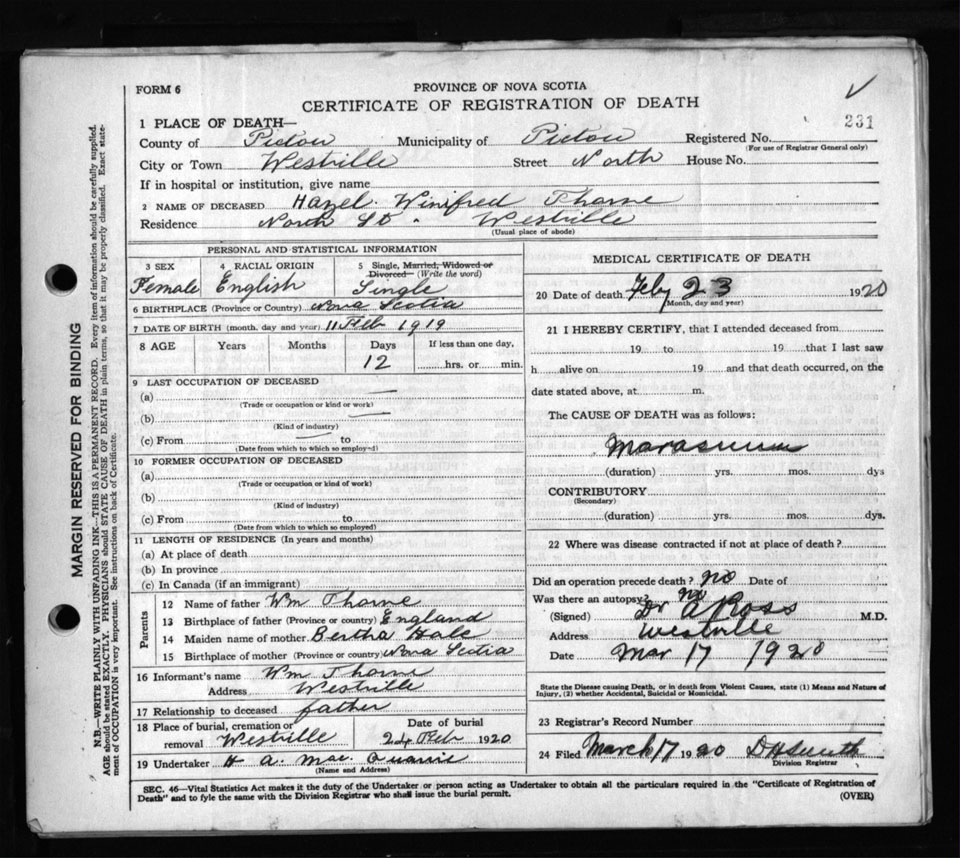 FORM 6
PROVINCE OF NOVA SCOTIA
CERTIFICATE OF REGISTRATION OF DEATH
231
1 PLACE OF DEATH—
County of Pictou Municipality of Pictou Registered No.
(For use of Registrar General only)
City or Town Westville Street North House No.
If in hospital or institution, give name
2 NAME OF DECEASED Hazel Winifred Thorne
Residence North St. Westville
(Usual place of abode)
PERSONAL AND STATISTICAL INFORMATION
3 SEX 4 RACIAL ORIGIN 5 Single, Married, Widowed or Divorced— (Write the word)
Female English Single
6 BIRTHPLACE (Province or Country) Nova Scotia
7 DATE OF BIRTH (month, day and year) 11 Feb 1919
8 AGE Years Months Days If less than one day,
12 hrs. or min.
9 LAST OCCUPATION OF DECEASED
(a)
(Trade or occupation or kind or work)
(b)
(Kind of industry)
(c) From to
(Date from which to which so employed)
10 FORMER OCCUPATION OF DECEASED
(a)
(Trade or occupation or kind of work)
(b)
(Kind of industry)
(c) From to
(Date from which to which so employed)
11 LENGTH OF RESIDENCE (In years and months)
(a) At place of death
(b) In province
(c) In Canada (if an immigrant)
Parents
12 Name of father Wm Thorne
13 Birthplace of father (Province or country) England
14 Maiden name of mother Bertha Hale
15 Birthplace of mother (Province or country) Nova Scotia
16 Informant's name Wm Thorne
Address Westville
17 Relationship to deceased father
18 Place of burial, cremation or removal Westville
Date of burial 24 Feb 1920
19 Undertaker H A. Mac
(Name and Address)
MEDICAL CERTIFICATE OF DEATH
20 Date of death Feby 23 1920
(Month, day and year)
21 I HEREBY CERTIFY, that I attended deceased from
19 to 19 that I last saw
h alive on 19 and that death occurred, on the
date stated above, at m.
The CAUSE OF DEATH was as follows:
Marasmus
(duration) yrs. mos. dys
CONTRIBUTORY
(Secondary)
(duration) yrs. mos. dys.
22 Where was disease contracted if not at place of death?
Did an operation precede death? no Date of
Was there an autopsy? no
(Signed) Dr A Ross M.D.
Address Westville
Date Mar 17 1920
State the Disease causing Death, or in death from Violent Causes, state (1) Means and Nature of
Injury, (2) whether Accidental, Suicidal or Homicidal.
23 Registrar's Record Number
24 Filed March 17 1920 D H Smith
Division Registrar
SEC. 46—Vital Statistics Act makes it the duty of the Undertaker or person acting as Undertaker to obtain all the particulars required in the "Certificate of Registration of
Death" and to fyle the same with the Division Registrar who shall issue the burial permit.
(OVER)
MARGIN RESERVED FOR BINDING
N.B.—WRITE PLAINLY WITH UNFADING INK—THIS IS A PERMANENT RECORD. Every item of information should be carefully supplied.
AGE should be stated EXACTLY. PHYSICIANS should STATE CAUSE OF DEATH in plain terms, so that it may be properly classified. Exact state-
ment of OCCUPATION is very important. See instructions on back of Certificate.